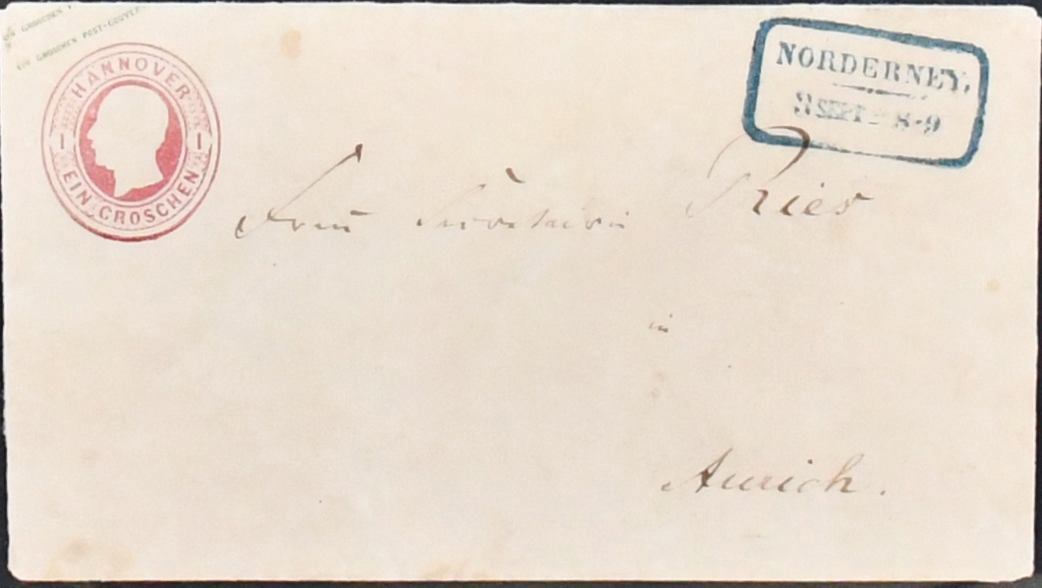 EIN GROSCHEN POST-COUVERT
HANNOVER
EIN GROSCHEN
NORDERNEY.
3 SEPT 8-9
Frau Secretairin Ries
in
Aurich.